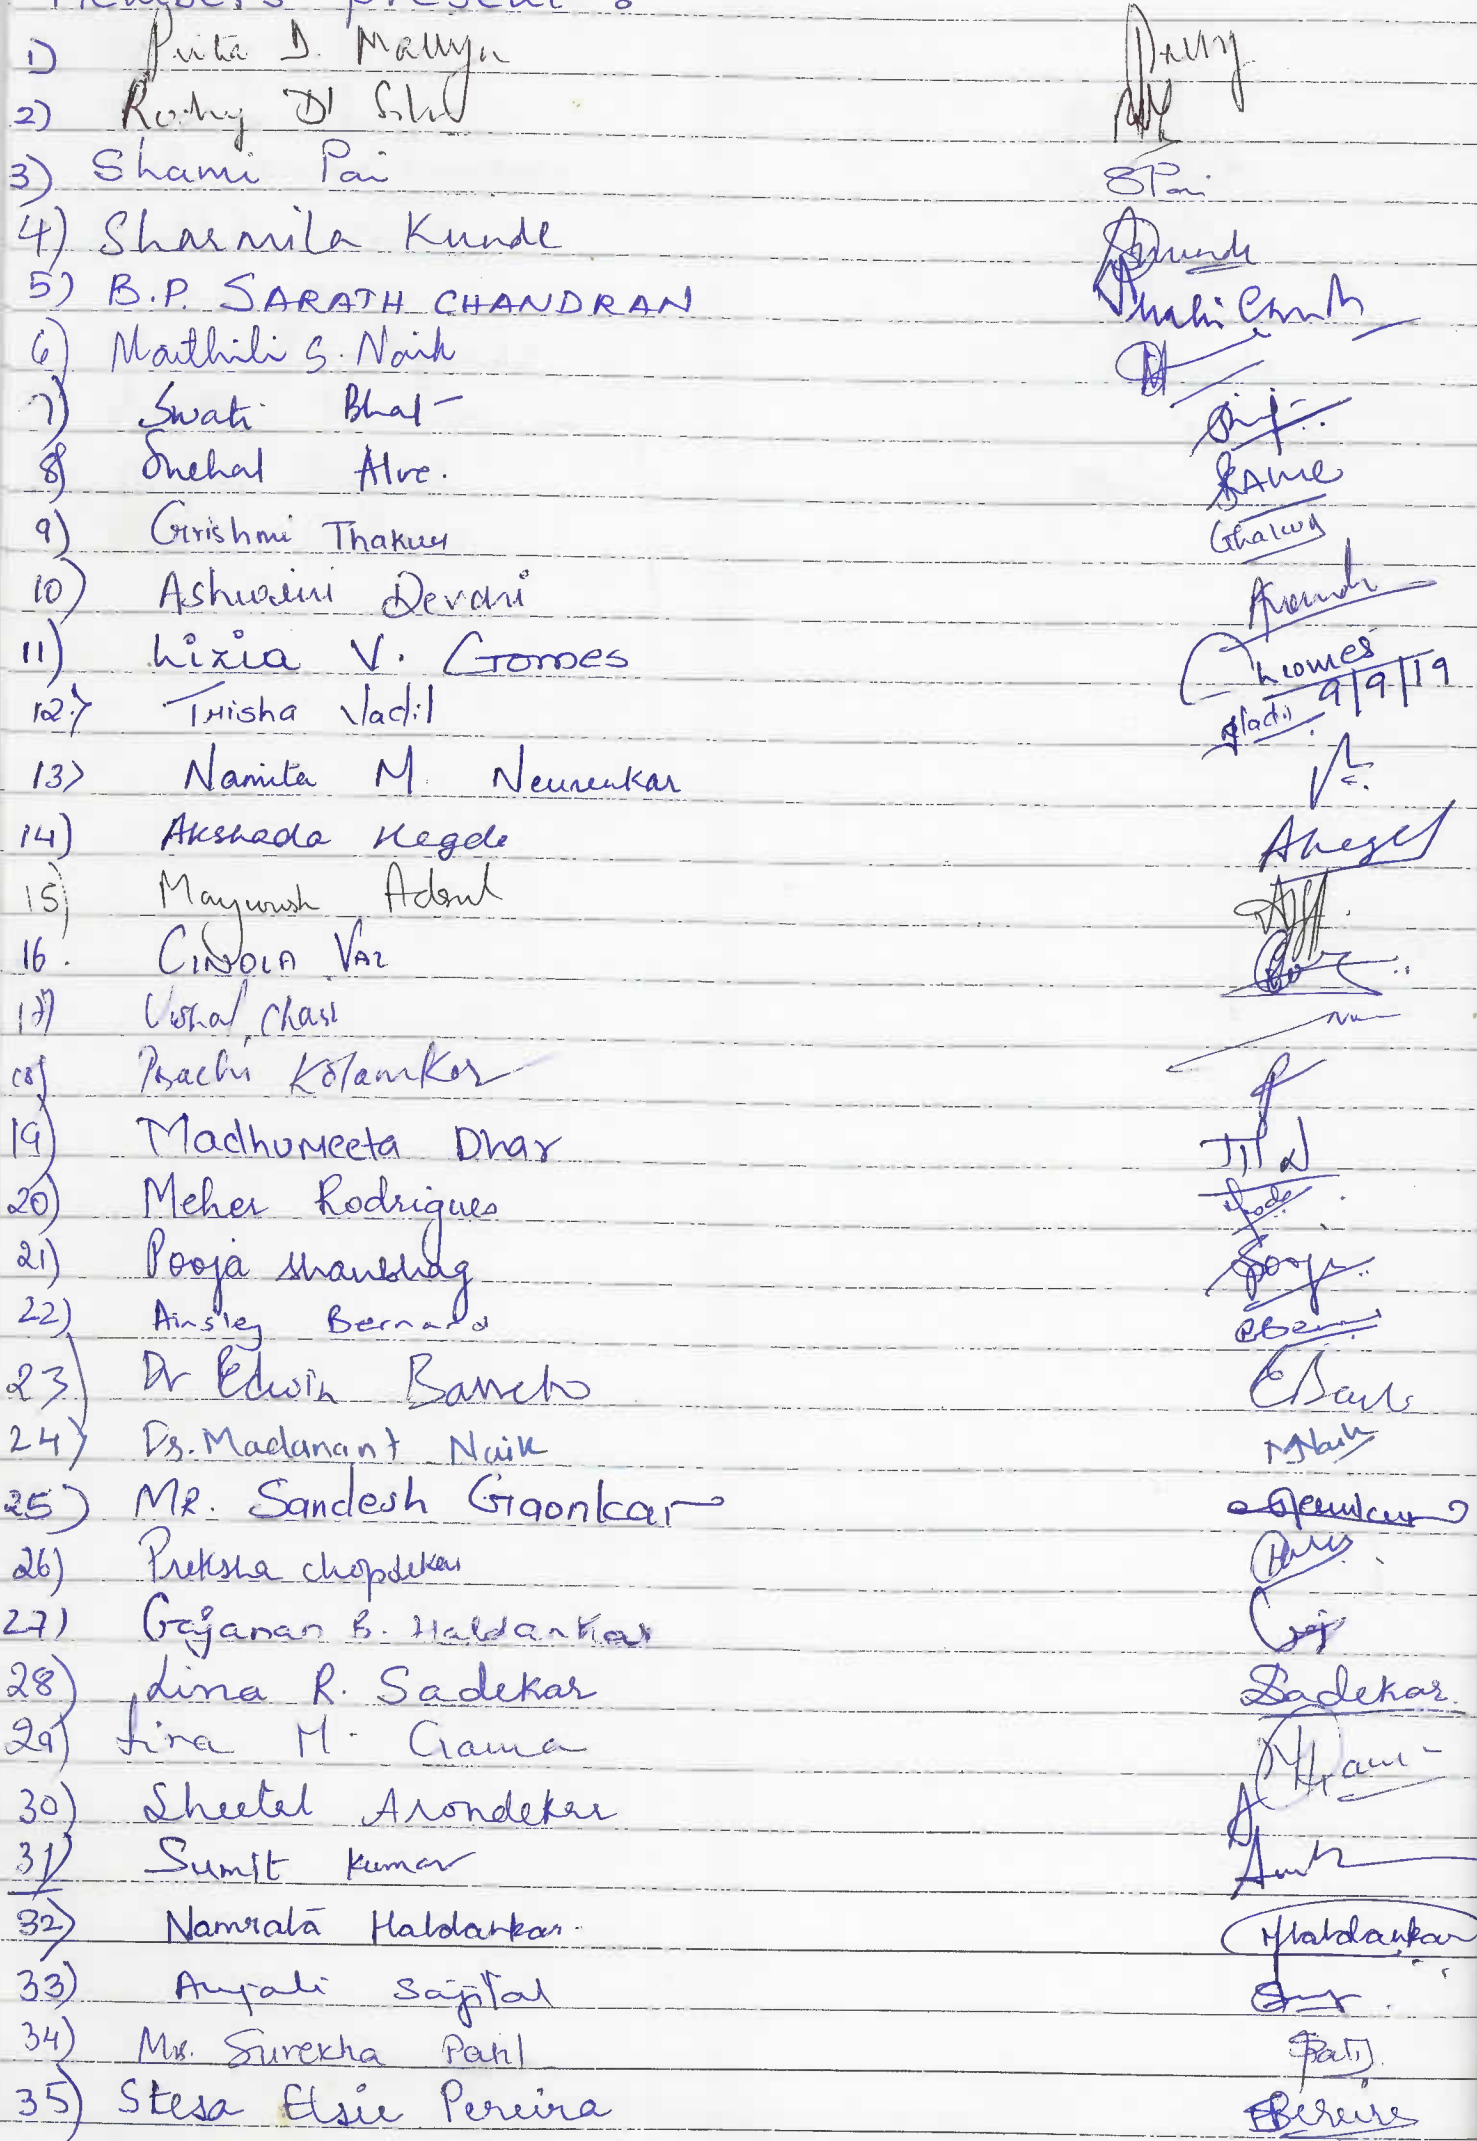 Members present :
1) Prita D. Mallya
2) Rodny D' Silva
3) Shami Pai SPai
4) Sharmila Kunde SKunde
5) B.P. SARATH CHANDRAN
6) Maithili S. Naik
7) Swati Bhat
8) Snehal Alve.
9) Grishmi Thakur
10) Ashwini Devari
11) Lizia V. Gomes LGomes 9/9/19
12) Trisha Vadil
13) Namita M. Neurenkar
14) Akshada Hegde AHegde
15) Mayuresh Adsul
16. CINDIA VAZ
17) Vishal Chari
18) Prachi Kolamkar
19) Madhumeeta Dhar
20) Meher Rodrigues
21) Pooja Shanbhag Pooja
22) Ainsley Bernard
23) Dr Edwin Barreto
24) Dr. Madanant Naik MNaik
25) MR. Sandesh Gaonkar Gaonkar
26) Preksha Chopdekar
27) Gajanan B. Haldankar Gaj
28) Lina R. Sadekar Sadekar
29) Lira M. Gama
30) Sheetal Arondekar
31) Sumit Kumar
32) Namrata Haldankar. NHaldankar
33) Anjali Sajjital
34) Ms. Surekha Patil SPatil
35) Stesa Elsie Pereira Pereira